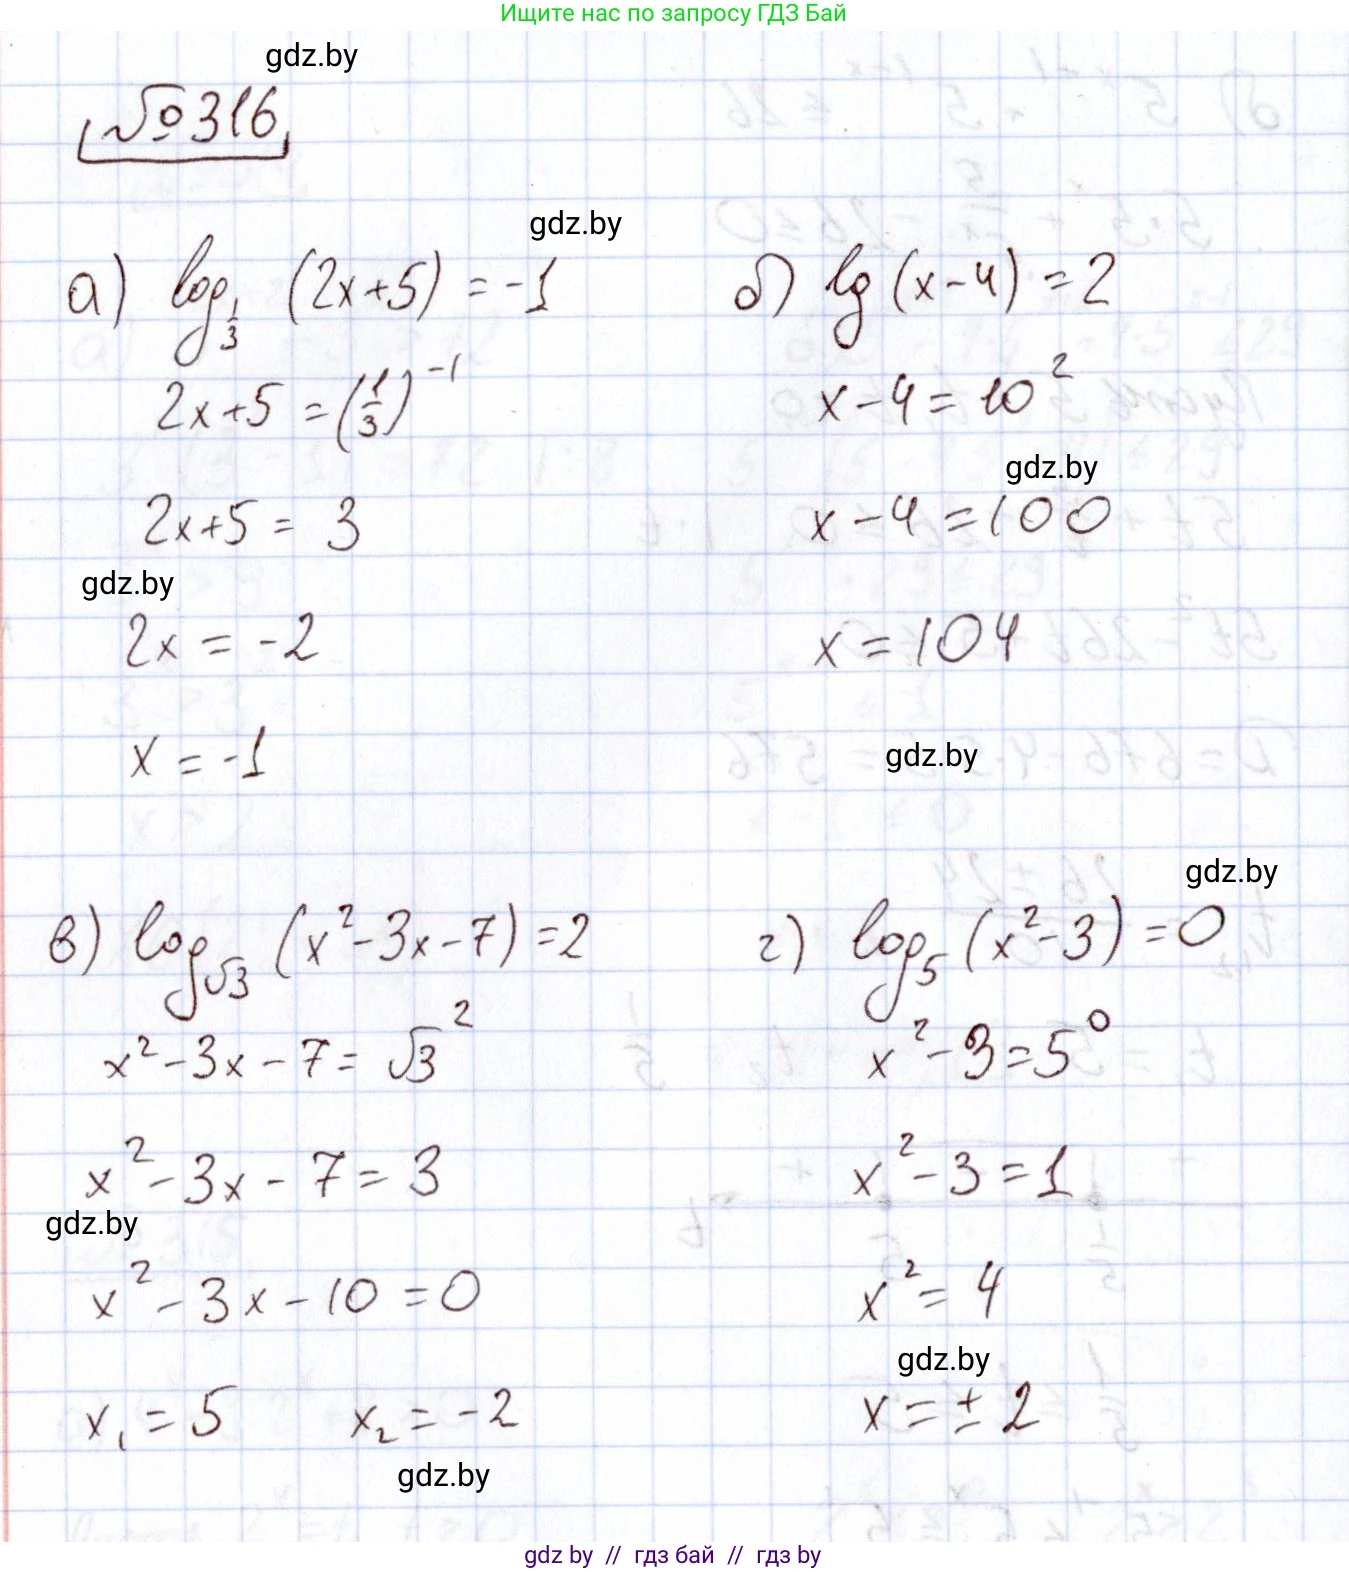 Ищите нас по запросу ГДЗ Бай
gdz.by
№316
gdz.by
а) log_{1/3} (2x+5) = -1
2x+5 = (1/3)^{-1}
2x+5 = 3
gdz.by
2x = -2
x = -1
б) lg (x-4) = 2
x-4 = 10^2
gdz.by
x-4 = 100
x = 104
gdz.by
в) log_{√3} (x^2-3x-7) = 2
x^2-3x-7 = √3^2
x^2-3x-7 = 3
gdz.by
x^2-3x-10 = 0
x_1 = 5 x_2 = -2
gdz.by
gdz.by
г) log_5 (x^2-3) = 0
x^2-3 = 5^0
x^2-3 = 1
x^2 = 4
gdz.by
x = ±2
gdz by // гдз бай // гдз by